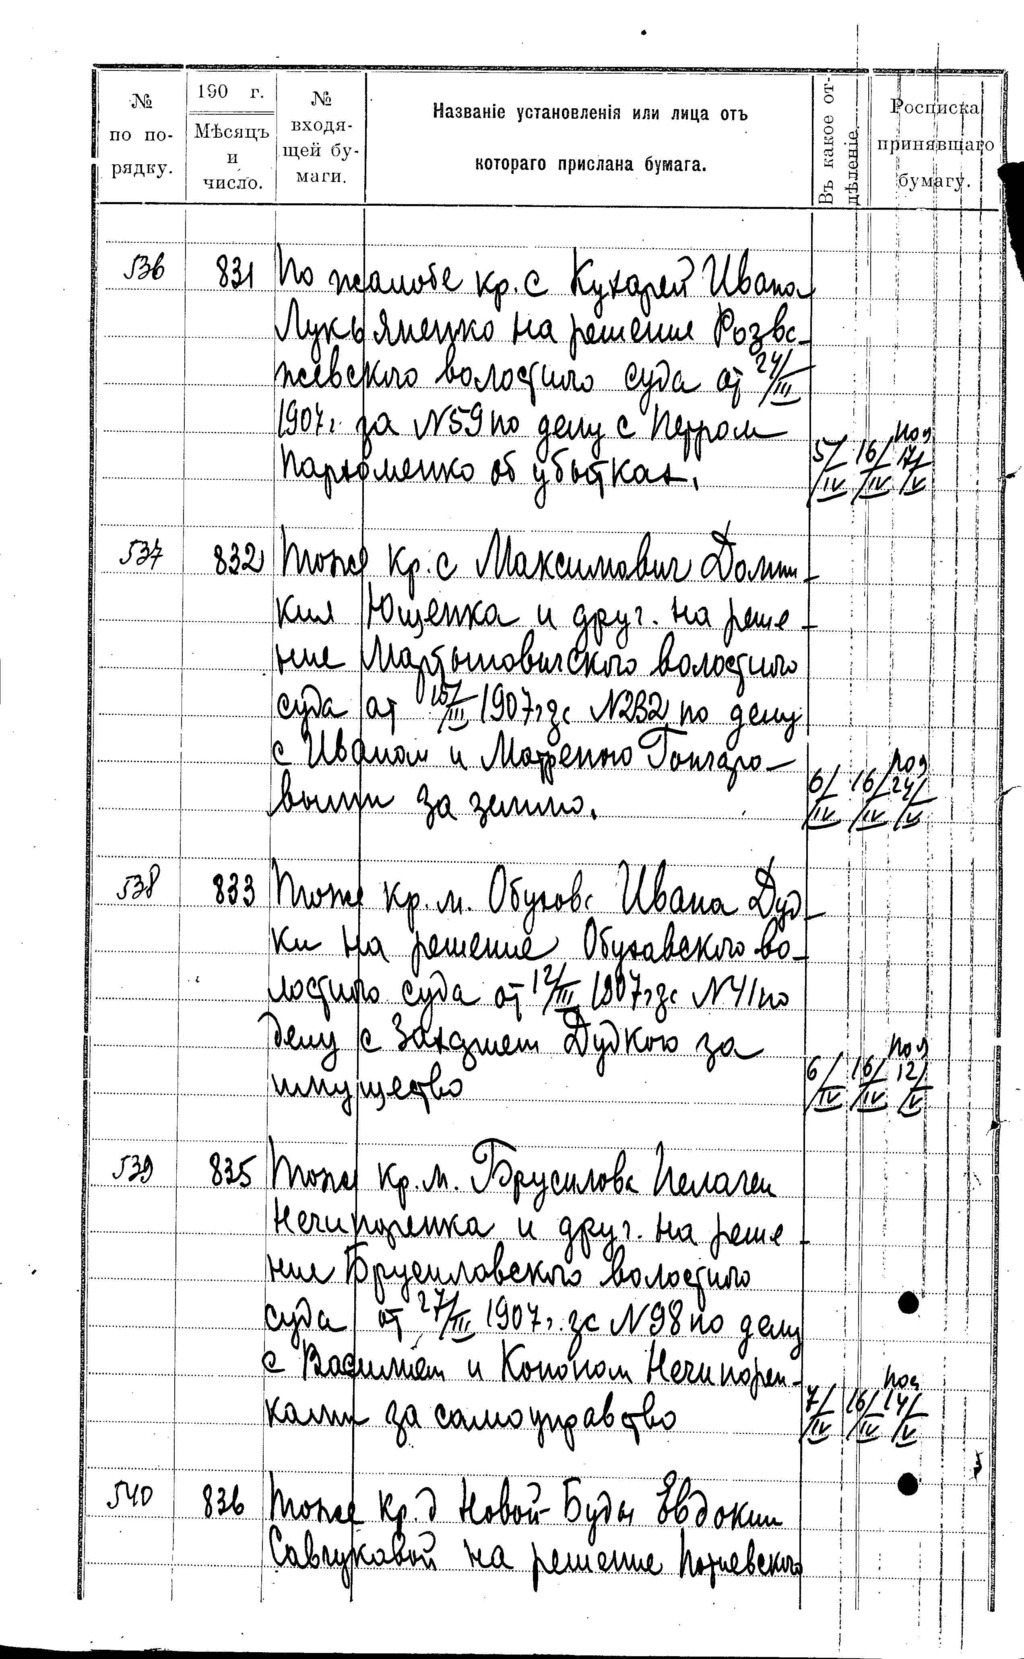 № по по-рядку.
190 г.
Мѣсяцъ и число.
№ входя-щей бу-маги.
Названіе установленія или лица отъ
котораго прислана бумага.
Въ какое от-дѣленіе
Росписка принявшаго бумагу.
536 831 По жалобе кр. с Кухарей Ивана
Лукьяненко на решение Розва-
жевского волостного суда от 24/III
1907 г. за N59 по делу с Петром
Пархоменко об убытках.
5/IV 16/IV 17/V
537 832 Тоже кр. с Максимович Домни-
кия Ющенка и друг. на реше-
ние Мартыновичского волостного
суда от 15/III 1907 г. за N232 по делу
с Иваном и Матреною Гончаро-
выми за землю.
6/IV 16/IV 24/V
538 833 Тоже кр. м. Обухова Ивана Дуд-
ки на решение Обуховского во-
лостного суда от 12/III 1907 г. за N41 по
делу с Захарием Дудкою за
имущество
6/IV 16/IV 12/V
539 835 Тоже кр. м. Брусилова Пелагеи
Нечипоренка и друг. на реше-
ние Брусиловского волостного
суда от 27/III 1907 г. за N98 по делу
с Василием и Кононом Нечипорен-
ками за самоуправство
7/IV 16/IV 14/V
540 836 Тоже кр. д Новой-Буды Евдокии
Савчуковой на решение Потиевского